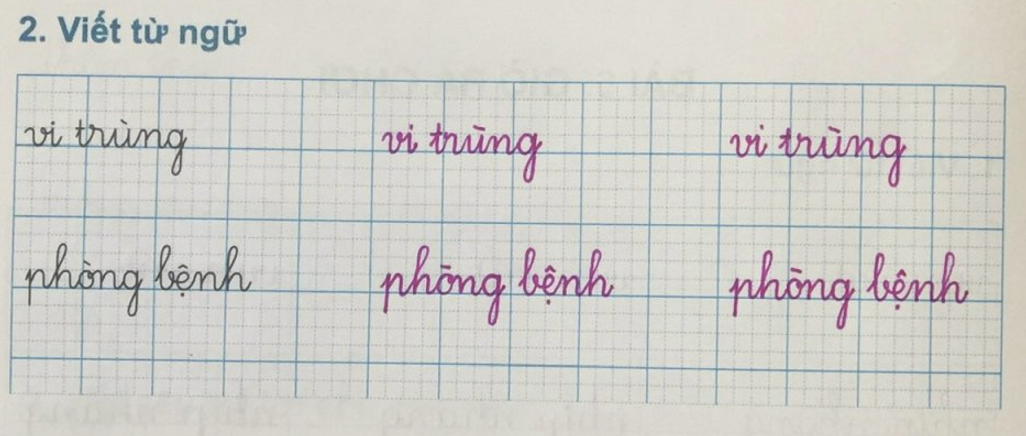 2. Viết từ ngữ
vi trùng vi trùng vi trùng
phòng bệnh phòng bệnh phòng bệnh